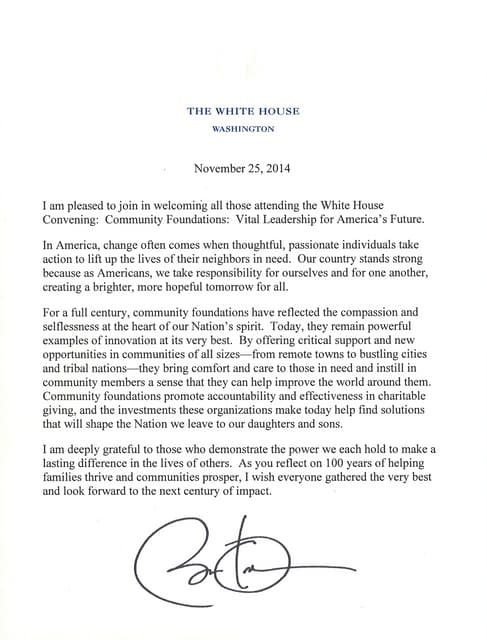 THE WHITE HOUSE
WASHINGTON
November 25, 2014
I am pleased to join in welcoming all those attending the White House
Convening: Community Foundations: Vital Leadership for America's Future.
In America, change often comes when thoughtful, passionate individuals take
action to lift up the lives of their neighbors in need. Our country stands strong
because as Americans, we take responsibility for ourselves and for one another,
creating a brighter, more hopeful tomorrow for all.
For a full century, community foundations have reflected the compassion and
selflessness at the heart of our Nation's spirit. Today, they remain powerful
examples of innovation at its very best. By offering critical support and new
opportunities in communities of all sizes—from remote towns to bustling cities
and tribal nations—they bring comfort and care to those in need and instill in
community members a sense that they can help improve the world around them.
Community foundations promote accountability and effectiveness in charitable
giving, and the investments these organizations make today help find solutions
that will shape the Nation we leave to our daughters and sons.
I am deeply grateful to those who demonstrate the power we each hold to make a
lasting difference in the lives of others. As you reflect on 100 years of helping
families thrive and communities prosper, I wish everyone gathered the very best
and look forward to the next century of impact.